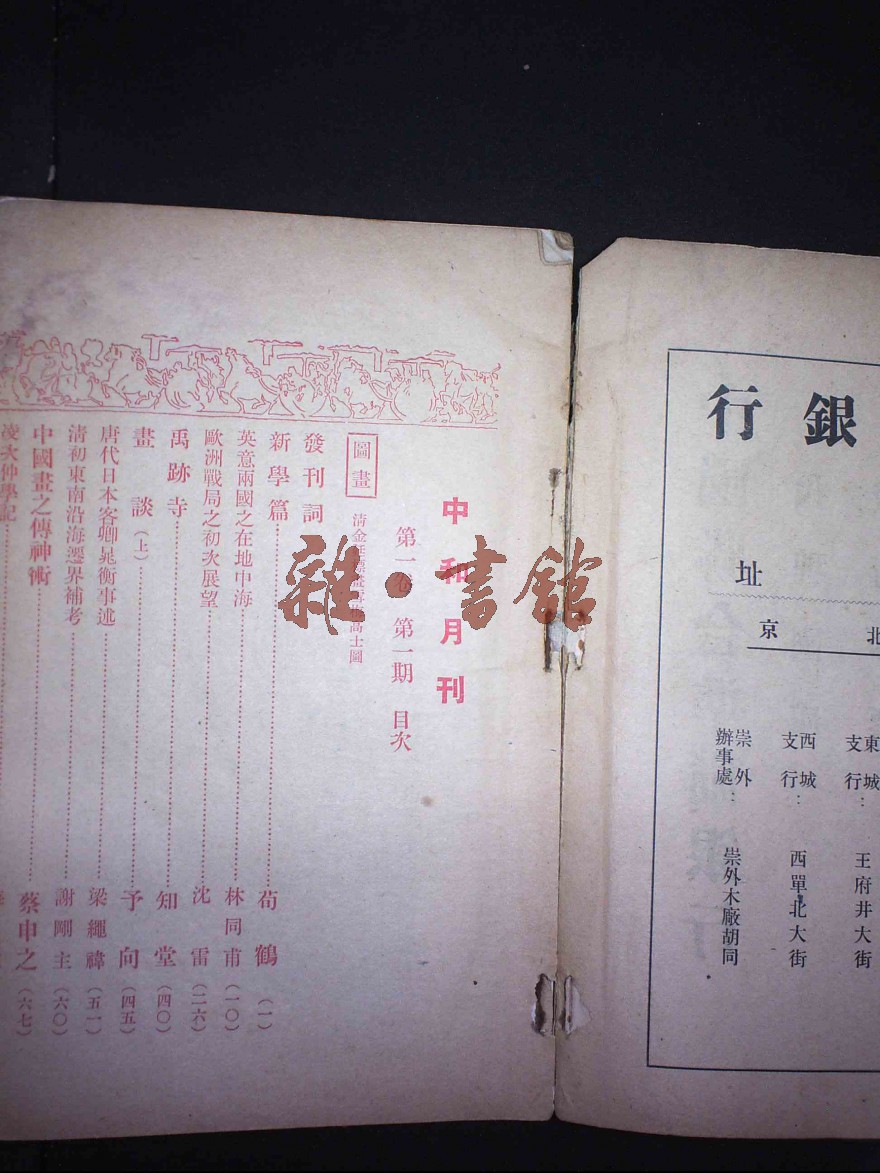 行 銀
址
京 北
東城支行： 王府井大街
西城支行： 西單北大街
崇外辦事處： 崇外木廠胡同
中和月刊
第一卷 第一期 目次
圖畫
發刊詞
新學篇 荀鶴 （一）
英意兩國之在地中海 林同甫 （一〇）
歐洲戰局之初次展望 沈雷 （二六）
禹跡寺 知堂 （四〇）
畫談（上） 予向 （四五）
唐代日本客卿晁衡事述 梁繩禕 （五一）
清初東南沿海遷界補考 謝剛主 （六〇）
中國畫之傳神術 蔡申之 （六七）
凌次仲學記
雜·書館